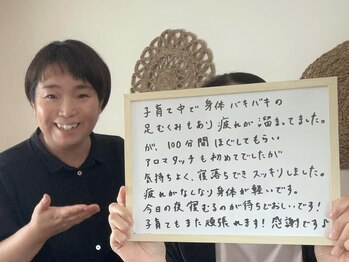 子育て中で身体バキバキの
足むくみもあり疲れが溜まってました。
が、100分間ほぐしてもらい
アロマタッチも初めてでしたが
気持ちよく、寝落ちできスッキリしました。
疲れがなくなり身体が軽いです。
今日の夜寝むるのが待ちどおしいです!
子育てもまた頑張れます! 感謝です♪